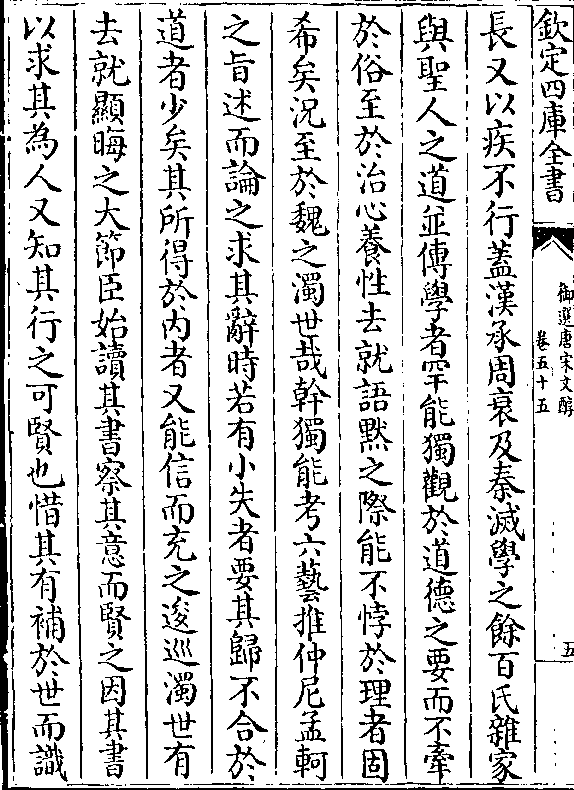 欽定四庫全書
御選唐宋文醇
卷五十五
五
長又以疾不行蓋漢承周衰及秦滅學之餘百氏雜家
與聖人之道並傳學者罕能獨觀於道德之要而不牽
於俗至於治心養性去就語黙之際能不悖於理者固
希矣況至於魏之濁世哉幹獨能考六藝推仲尼孟軻
之旨述而論之求其辭時若有小失者要其歸不合於
道者少矣其所得於內者又能信而充之逡巡濁世有
去就顯晦之大節臣始讀其書察其意而賢之因其書
以求其為人又知其行之可賢也惜其有補於世而識